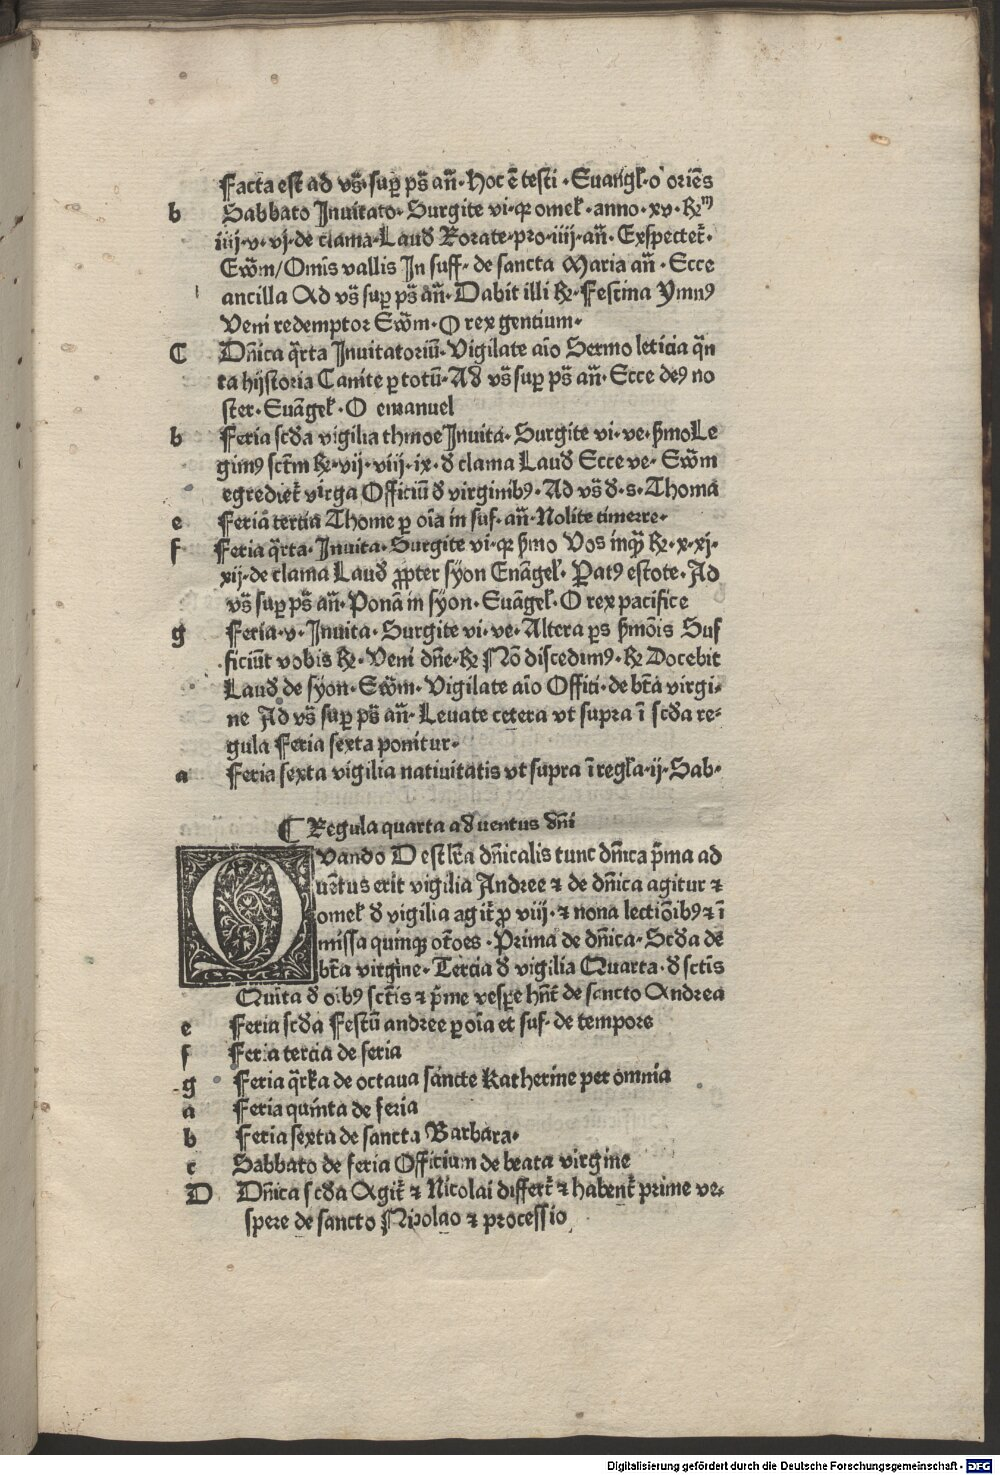 Facta est ad vs̄·sup̱ ps̄ an̄·hoc ē testi·Euāngl̄·o oriēs
b Sabbato Inuitato·Surgite vi·qr omel̄·anno·xv·℞
iiij·v·vj·de clama·Laud̄ Rorate·pro·iiij·an̄·Exspectet̄·
Ew̄m/Omīs vallis In suff·de sancta Maria an̄·Ecce
ancilla Ad vs̄ sup̱ ps̄ an̄·Dabit illi ℞·Festina Ymnꝰ
Veni redemptor Ew̄m·O rex gentium·
C Dn̄ica q̄rta Inuitatoriū·Vigilate aīo Sermo leticia q̄n
ta hijstoria Canite ꝑ totū·Ad vs̄ sup̱ ps̄ an̄·Ecce deꝰ no
ster·Euāgel̄·O emanuel
b Feria scd̄a vigilia thmoe Inuita·Surgite vi·ve·ẜmo Le
gimꝰ sct̄m ℞·vij·viij·ix·d̄ clama Laud̄ Ecce ve·Ew̄m
egrediet̄ virga Officiū d̄ virginibꝰ·Ad vs̄ d̄·s·Thoma
e Feria tercia Thome ꝑ oīa in suf·an̄·Nolite timere·
f Feria q̄rta·Inuita·Surgite vi·qr ẜmo Vos inq̄ ℞·x·xj·
xij·de clama Laud̄ ꝓpter syon Enāgel̄·Patꝰ estote·Ad
vs̄ sup̱ ps̄ an̄·Ponā in syon·Euāgel̄·O rex pacifice
g Feria·v·Inuita·Surgite vi·ve·Altera ꝑs ẜmōis Suf
ficiūt vobis ℞·Veni dn̄e·℞ Nō discedimꝰ·℞ Docebit
Laud̄ de syon·Ew̄m·Vigilate aīo Offiti·de bt̄a virgi-
ne Ad vs̄ sup̱ ps̄ an̄·Leuate cetera vt supra ī scd̄a re-
gula Feria sexta ponitur·
a Feria sexta vigilia natiuitatis vt supra ī regl̄a·ij·Sab·
¶ Regula quarta aduentus dn̄i
Quando D est lr̄a dn̄icalis tunc dn̄ica p̄ma ad
uētus erit vigilia Andree ⁊ de dn̄ica agitur ⁊
omel̄ d̄ vigilia agit̄ ꝓ viij·⁊ nona lectiōibꝰ ⁊ ī
missa quinqꝫ oīoes·Prima de dn̄ica·Scd̄a de
bt̄a virgine·Tercia d̄ vigilia Quarta·d̄ sctīs
Quīta d̄ oībꝰ sctīs ⁊ p̄me vespe hn̄t de sancto Andrea
e Feria scd̄a Festū andree ꝑ oīa et suf·de tempore
f Feria tercia de feria
g Feria q̄rta de octaua sancte Katherine per omnia
a Feria quinta de feria
b Feria sexta de sancta Barbara·
c Sabbato de feria Officium de beata virgine
D Dn̄ica scd̄a Agit̄ ⁊ Nicolai differt̄ ⁊ habent̄ prime ve-
spere de sancto Nicolao ⁊ processio
Digitalisierung gefördert durch die Deutsche Forschungsgemeinschaft · DFG